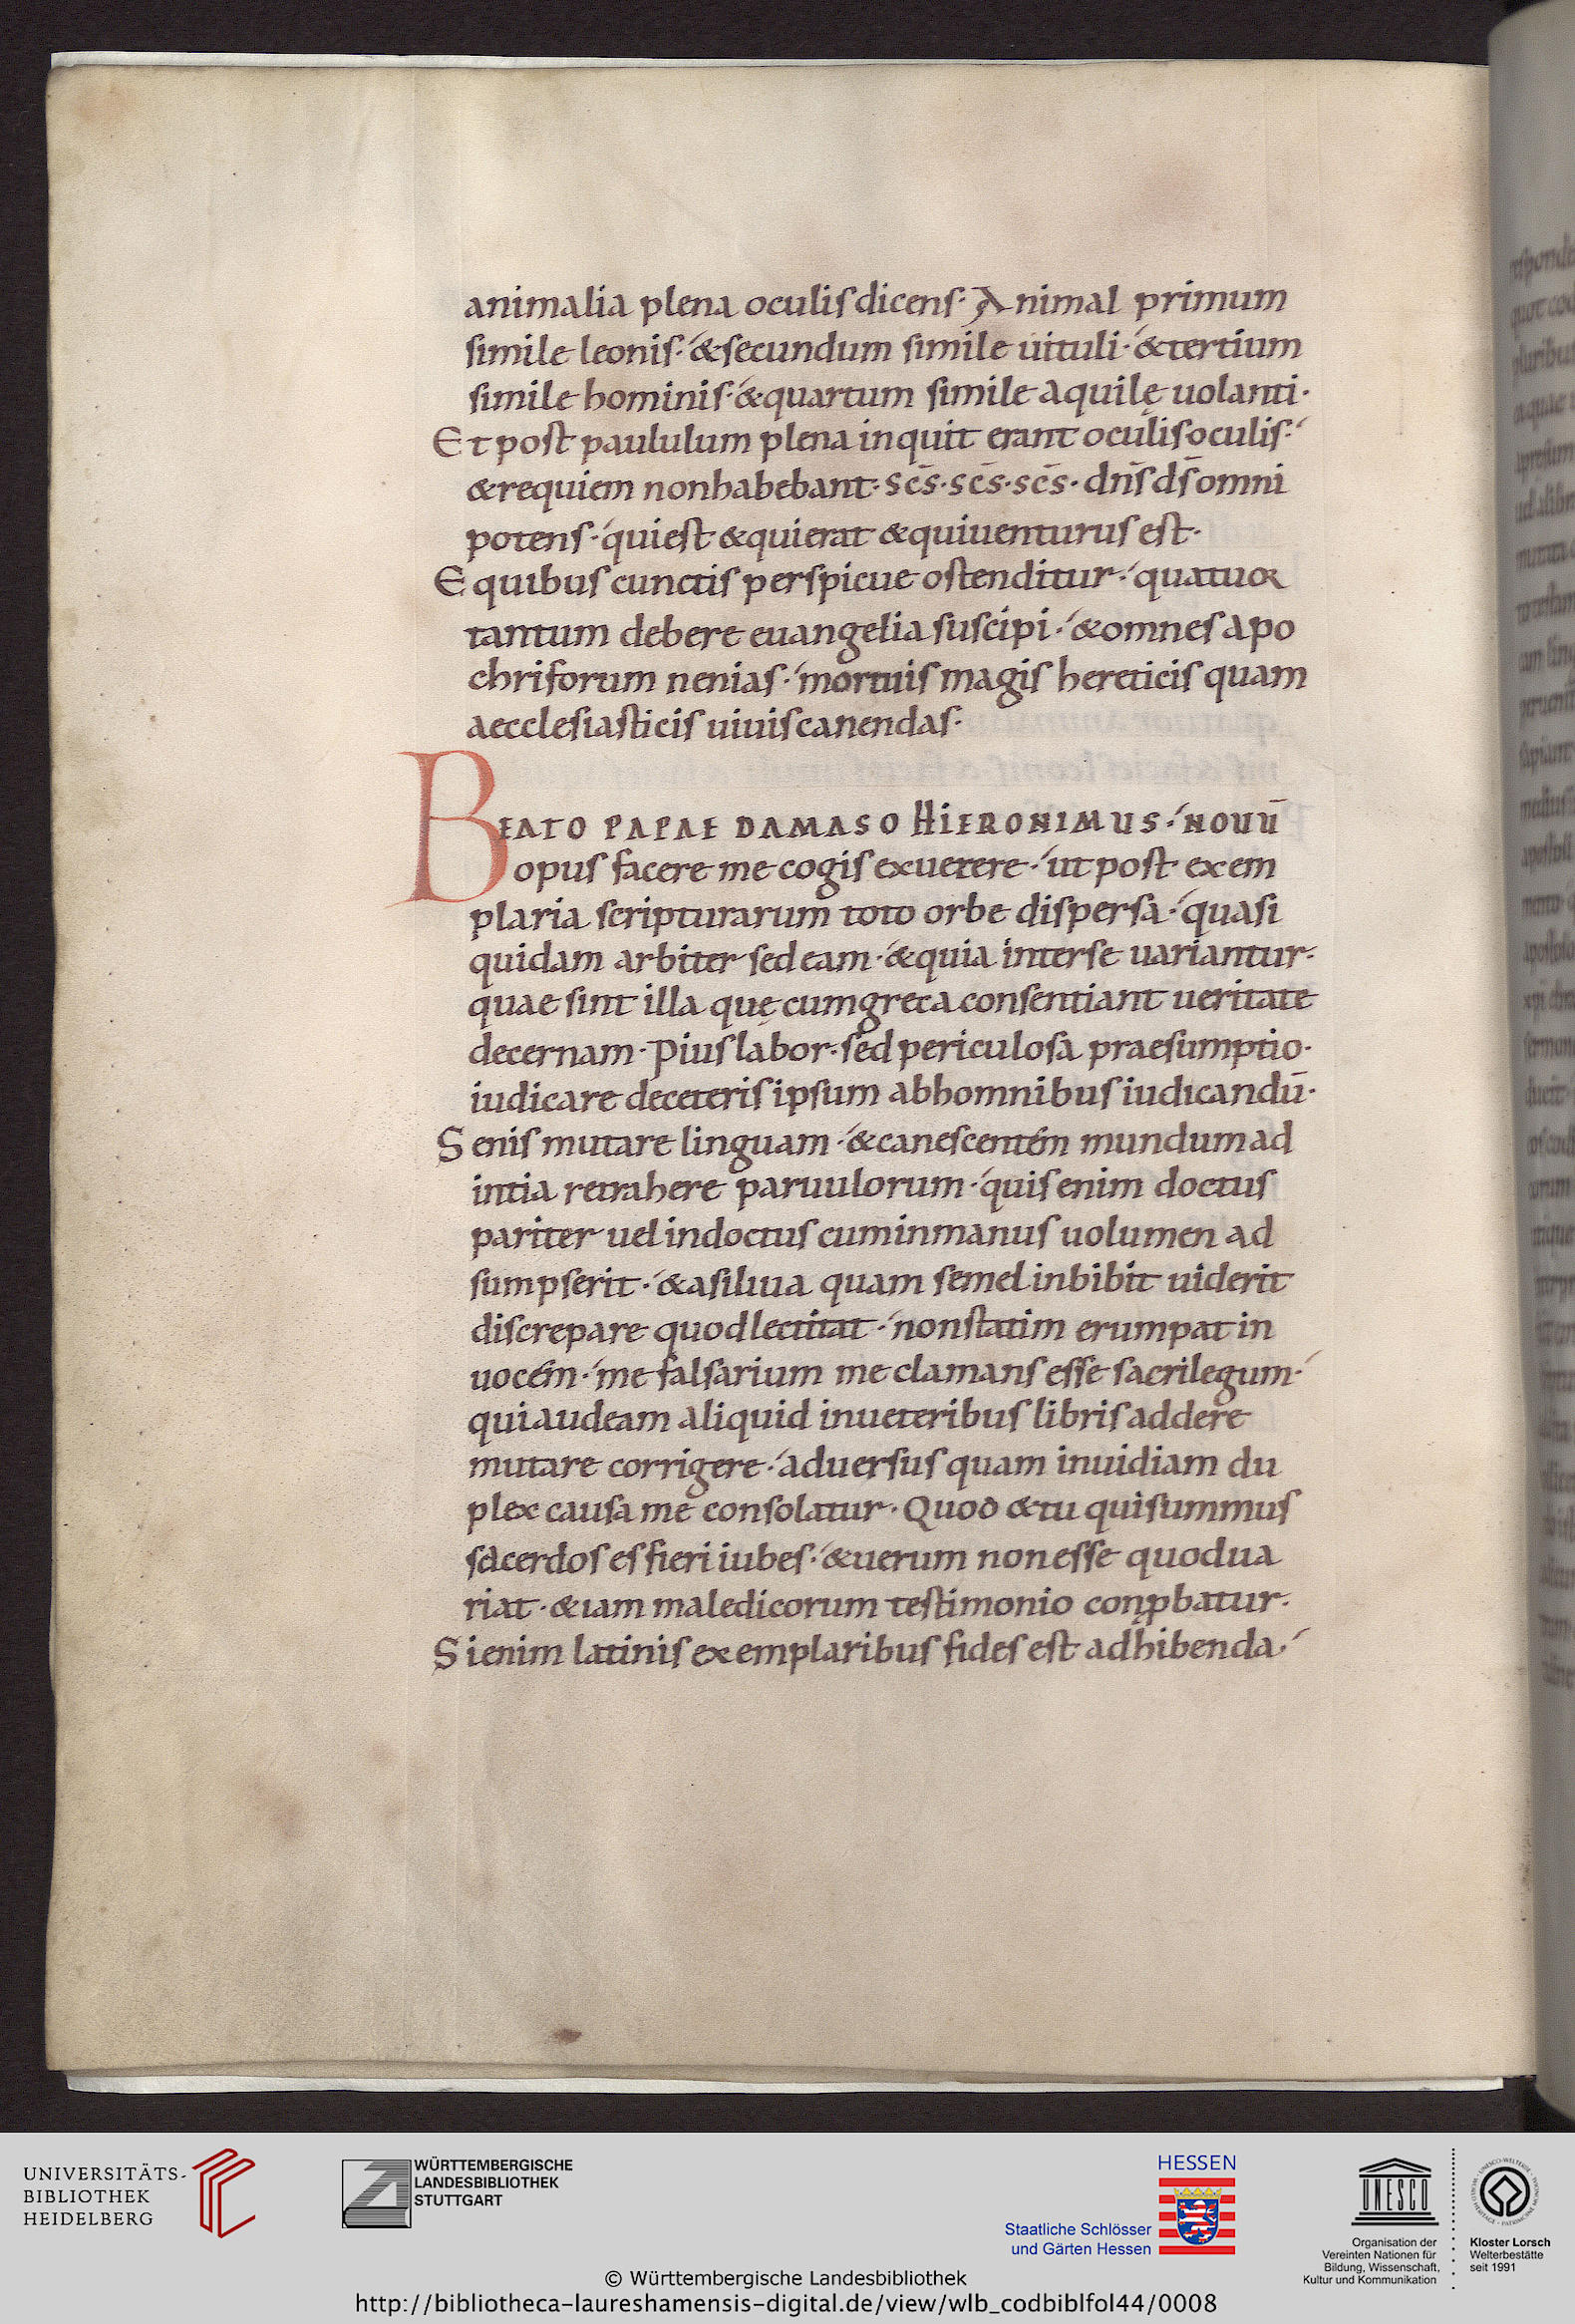 animalia plena oculis dicens· Animal primum
simile leonis· & secundum simile uituli· & tertium
simile hominis· & quartum simile aquilę uolanti·
Et post paululum plena inquit erant oculis oculis·
& requiem non habebant· sc̄s· sc̄s· sc̄s· dn̄s ds̄ omni
potens· qui est & qui erat & qui uenturus est·
E quibus cunctis perspicue ostenditur· quatuor
tantum debere euangelia suscipi· & omnes apo
chriforum nenias· mortuis magis hereticis quam
aecclesiasticis uiuis canendas·
BEATO PAPAE DAMASO HIERONIMUS· NOUŪ
opus facere me cogis ex uetere· ut post exem
plaria scripturarum toto orbe dispersa· quasi
quidam arbiter sedeam· & quia inter se uariantur·
quae sint illa quę cum greca consentiant ueritate
decernam· Pius labor· sed periculosa praesumptio·
iudicare de ceteris ipsum abhomnibus iudicandū·
Senis mutare linguam· & canescentem mundum ad
intia retrahere paruulorum· quis enim doctus
pariter uel indoctus cum in manus uolumen ad
sumpserit· & a siliua quam semel inbibit uiderit
discrepare quod lectitat· non statim erumpat in
uocem· me falsarium me clamans esse sacrilegum·
qui audeam aliquid in ueteribus libris addere
mutare corrigere· aduersus quam inuidiam du
plex causa me consolatur· Quod & tu qui summus
sacerdos es fieri iubes· & uerum non esse quod ua
riat· & iam maledicorum testimonio conꝓbatur·
Si enim latinis exemplaribus fides est adhibenda·
UNIVERSITÄTS-
BIBLIOTHEK
HEIDELBERG
WÜRTTEMBERGISCHE
LANDESBIBLIOTHEK
STUTTGART
HESSEN
Staatliche Schlösser
und Gärten Hessen
UNESCO
Organisation der
Vereinten Nationen für
Bildung, Wissenschaft,
Kultur und Kommunikation
Kloster Lorsch
Welterbestätte
seit 1991
© Württembergische Landesbibliothek
http://bibliotheca-laureshamensis-digital.de/view/wlb_codbiblfol44/0008